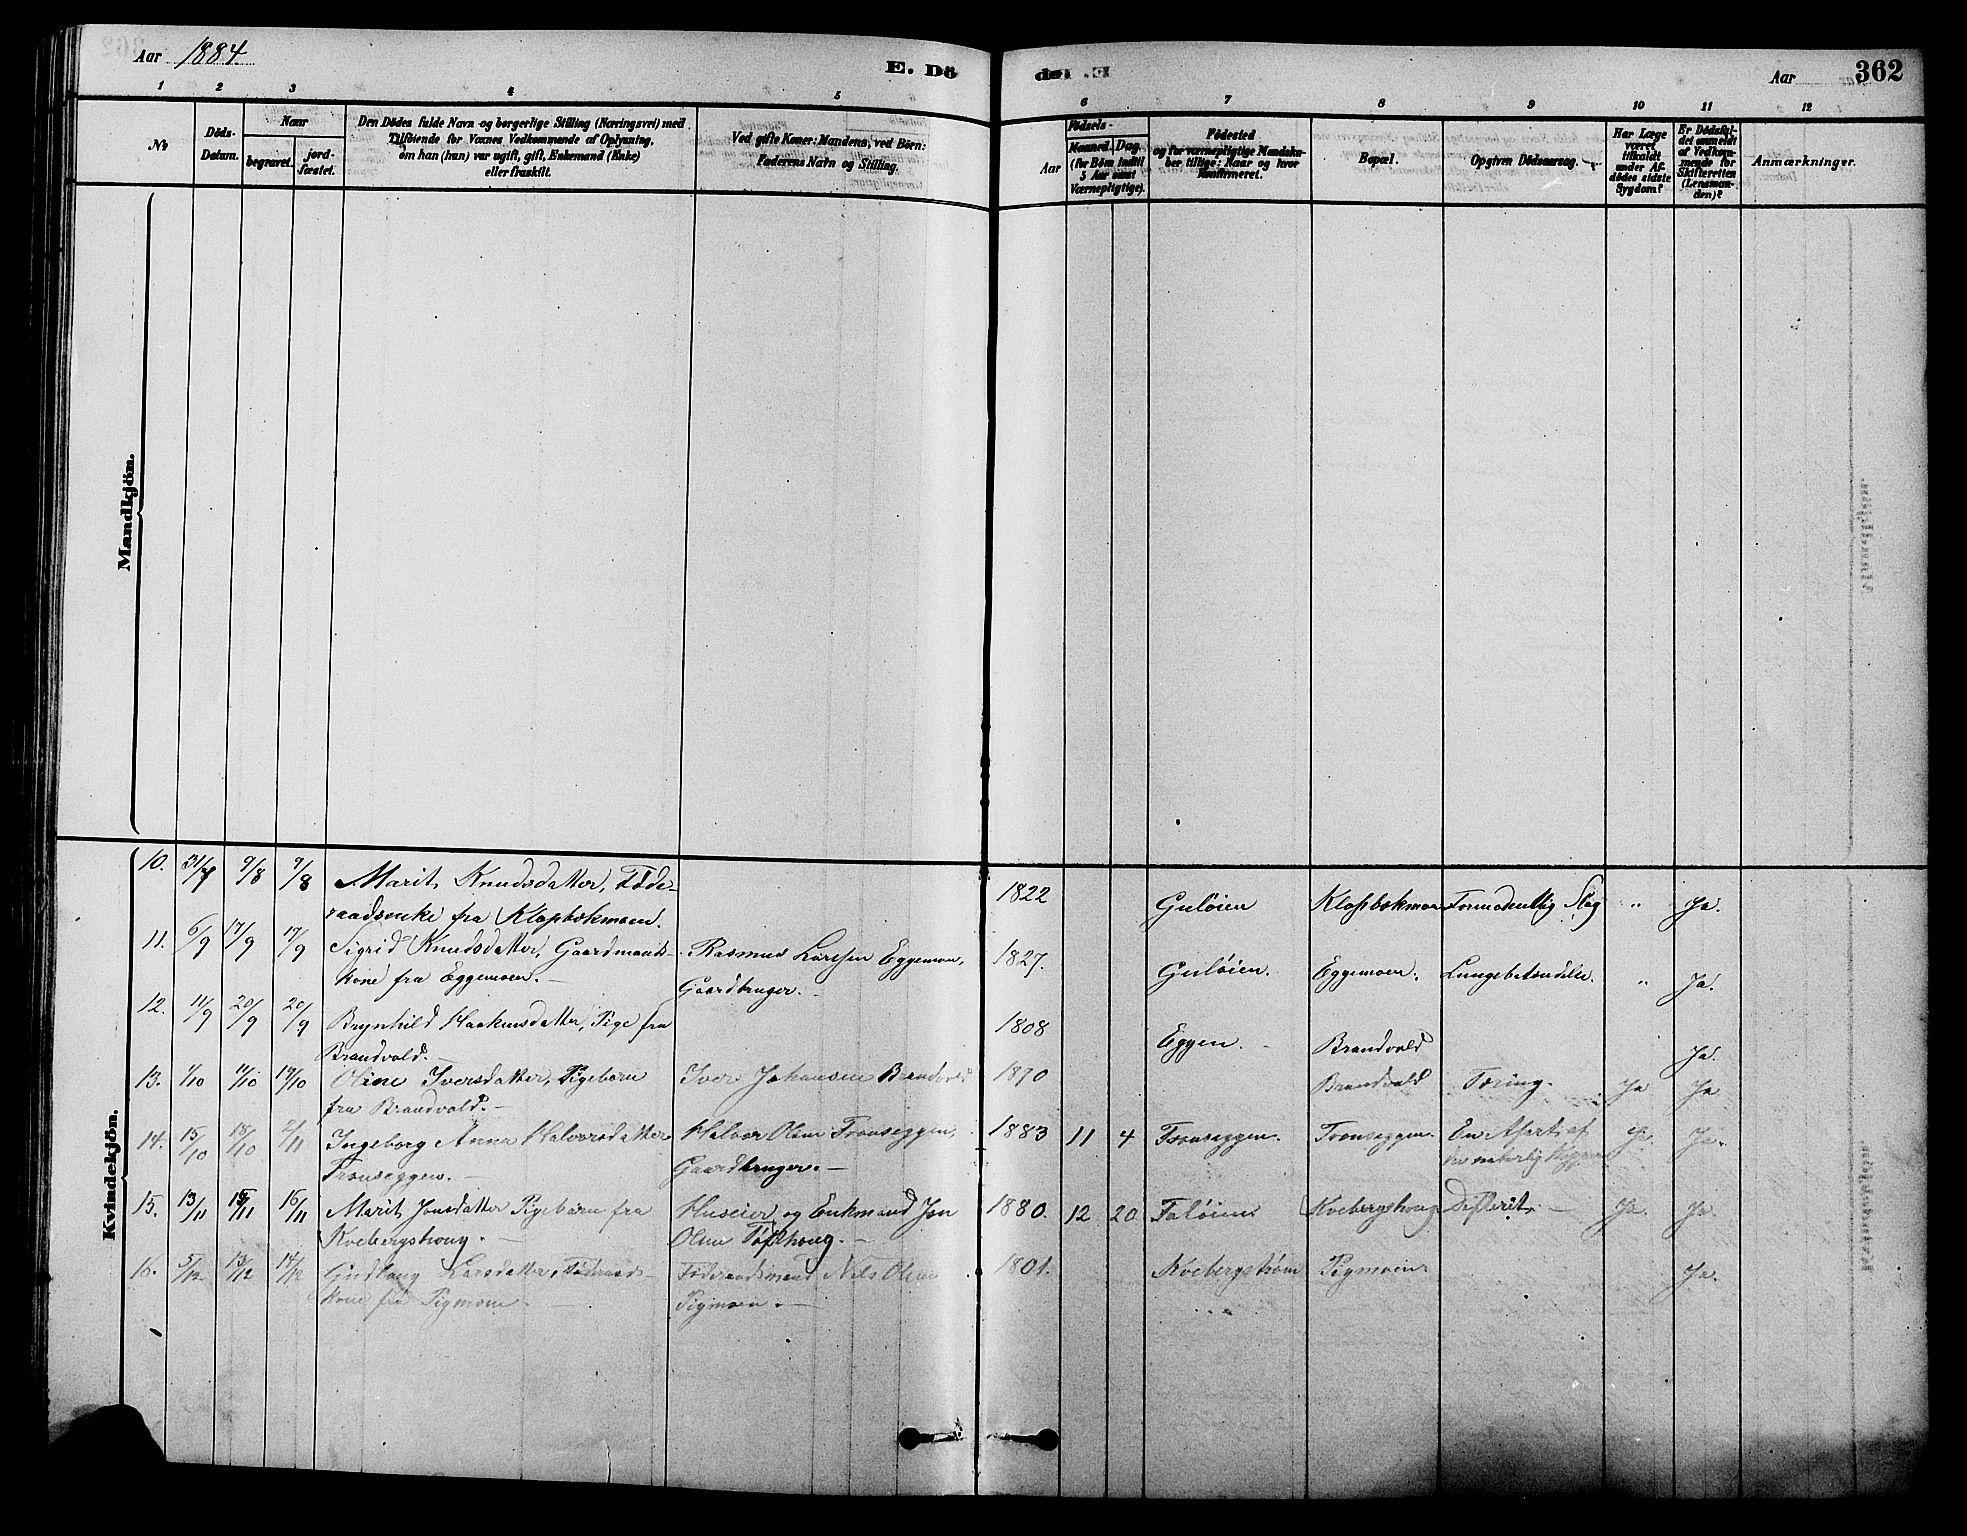 Aar 1884.
E. Dö
de. E.
Aar
362
1 2 3 4 5
6 7 8 9 10 11 12
No
Döds-
Datum.
Naar
begravet.
jord-
fæstet.
Den Dödes fulde Navn og borgerlige Stilling (Næringsvei) med
Tilföiende for Voxnes Vedkommende af Oplysning,
om han (hun) var ugift, gift, Enkemand (Enke)
eller fraskilt.
Ved gifte Koner: Mandens, ved Börn:
Faderens Navn og Stilling.
Födsels-
Aar
Maaned.
Dag.
(for Börn indtil
5 Aar samt
Værnepligtige).
Födested
og for værnepligtige Mandska-
ber tillige: Naar og hvor
konfirmeret.
Bopæl.
Opgiven Dödsaarsag.
Har Læge
været
tilkaldt
under Af-
dödes sidste
Sygdom?
Er Dödsfal-
det anmeldt
af Vedkom-
mende for
Skifteretten
(Lensman-
den)?
Anmærkninger.
Mandkjön.
Kvindekjön.
10. 31/7 9/8 9/8 Marit Knudsdatter, Föde- 1822 Gulöien Klopbakmoen Formodentlig Slag " Ja.
raadsenke fra Klopbakmoen.
11. 6/9 17/9 17/9 Sigrid Knudsdatter, Gaardmands- Rasmus Larsen Eggemoen, 1827. Gulöien. Eggemoen. Lungebetændelse. " Ja.
kone fra Eggemoen. Gaardbruger.
12. 11/9 20/9 20/9 Brynhild Haakensdatter, Pige fra 1808 Eggen. Brandvold Ja.
Brandvold.
13. 1/10 11/10 19/10 Oline Iversdatter, Pigebarn Iver Johansen Brandvold 1870 Brandvold Tæring. Ja Ja
fra Brandvold.
14. 15/10 18/10 2/11 Ingeborg Anne Halvorsdatter Halvor Olsen Tronseggen, 1883 11 4 Tronseggen. Tronseggen. En Ja. Ja.
Tronseggen. Gaardbruger.
15. 13/11 15/11 16/11 Marit Jonsdatter Pigebarn fra Huseier og Enkmand Jon 1880. 12 20. Kvebergshoug Difterit. Ja. Ja.
Kvebergshoug. Olsen
16. 5/12 13/12 14/12 Gudlaug Larsdatter, Föderaads- Föderaadsmand Nils Olsen 1801. Pigmoen Ja.
kone fra Pigmoen. Pigmoen.